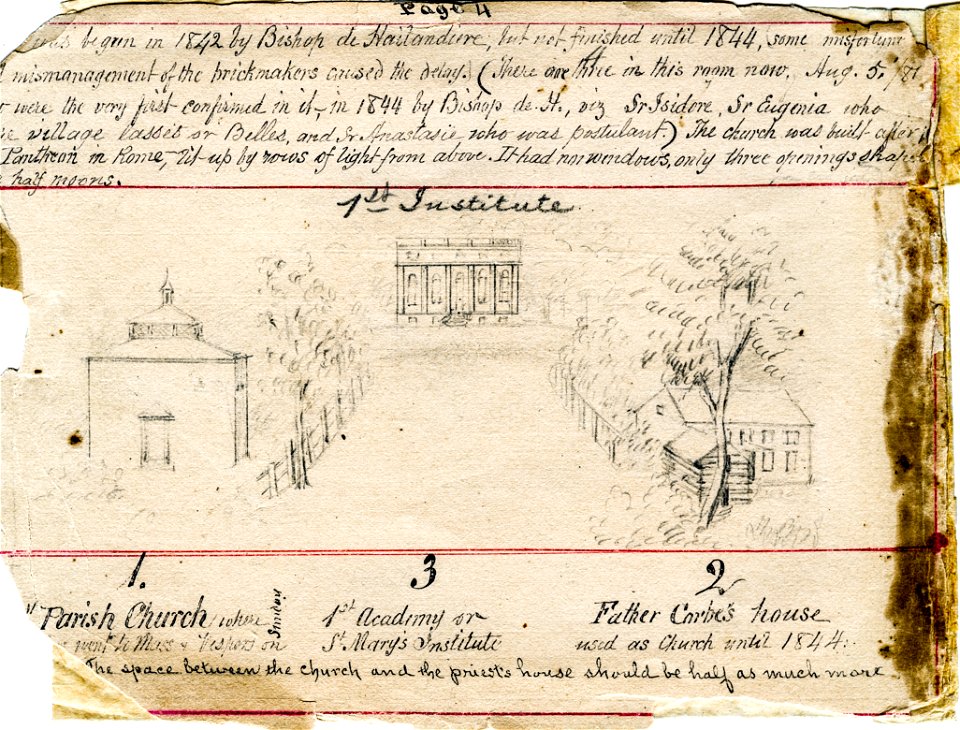 Page 4
was begun in 1842 by Bishop de Hailandiere, but not finished until 1844, (some misfortune
mismanagement of the brickmakers caused the delay.) (There are three in this room now, Aug. 5,
were the very first confirmed in it, in 1844 by Bishop de H., viz Sr Isidore, Sr Eugenia who
village lasses or Belles, and Sr Anastasie who was postulant.) The church was built after
Pantheon in Rome, lit up by rows of light from above. It had no windows, only three openings
half moons.
1st Institute
1.
3
2
Parish Church where
went to Mass & Vespers on Sunday
1st Academy or
St. Mary's Institute
Father Corbe's house
used as Church until 1844.
The space between the church and the priest's house should be half as much more